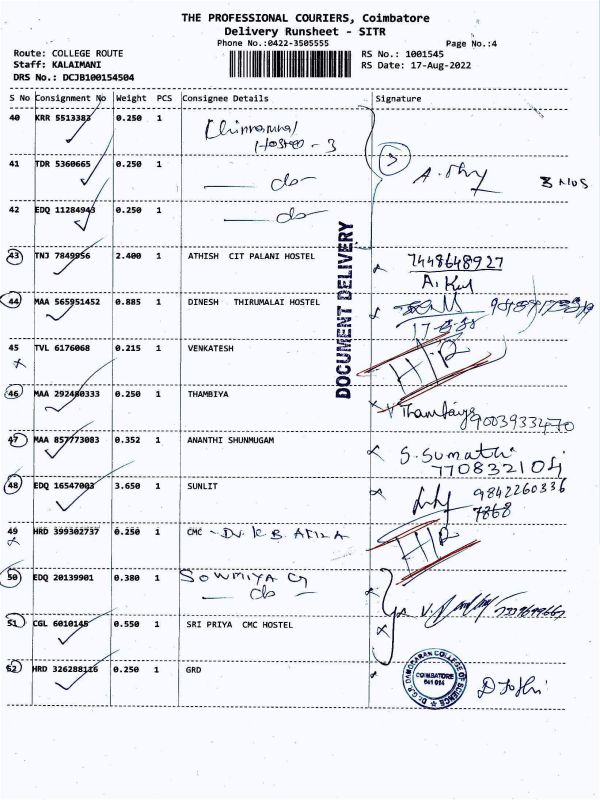 THE PROFESSIONAL COURIERS, Coimbatore
Delivery Runsheet - SITR
Phone No.:0422-3505555
Page No.:4
Route: COLLEGE ROUTE
RS No.: 1001545
Staff: KALAIMANI
RS Date: 17-Aug-2022
DRS No.: DCJB100154504
S No Consignment No Weight PCS Consignee Details Signature
40 KRR 5513383 0.250 1
Hostel - 3
3
41 TDR 5360665 0.250 1 do
3 Nos
42 EDQ 11284943 0.250 1 do
DOCUMENT DELIVERY
43 TNJ 7849956 2.400 1 ATHISH CIT PALANI HOSTEL 7448648927
44 MAA 565951452 0.885 1 DINESH THIRUMALAI HOSTEL
45 TVL 6176068 0.215 1 VENKATESH
x
46 MAA 292480333 0.250 1 THAMBIYA
9003933470
47 MAA 857773083 0.352 1 ANANTHI SHUNMUGAM S. Sumathi
770832104
48 EDQ 16547003 3.650 1 SUNLIT 9842260336
7868
49 HRD 399302737 0.250 1 CMC - Dr. K.B.
x
50 EDQ 20139901 0.380 1 SOWMIYA G
do
51 CGL 6010145 0.550 1 SRI PRIYA CMC HOSTEL
52 HRD 326288116 0.250 1 GRD
Dr.G.R. DAMODARAN COLLEGE OF SCIENCE
COIMBATORE
641 014
D Joshi